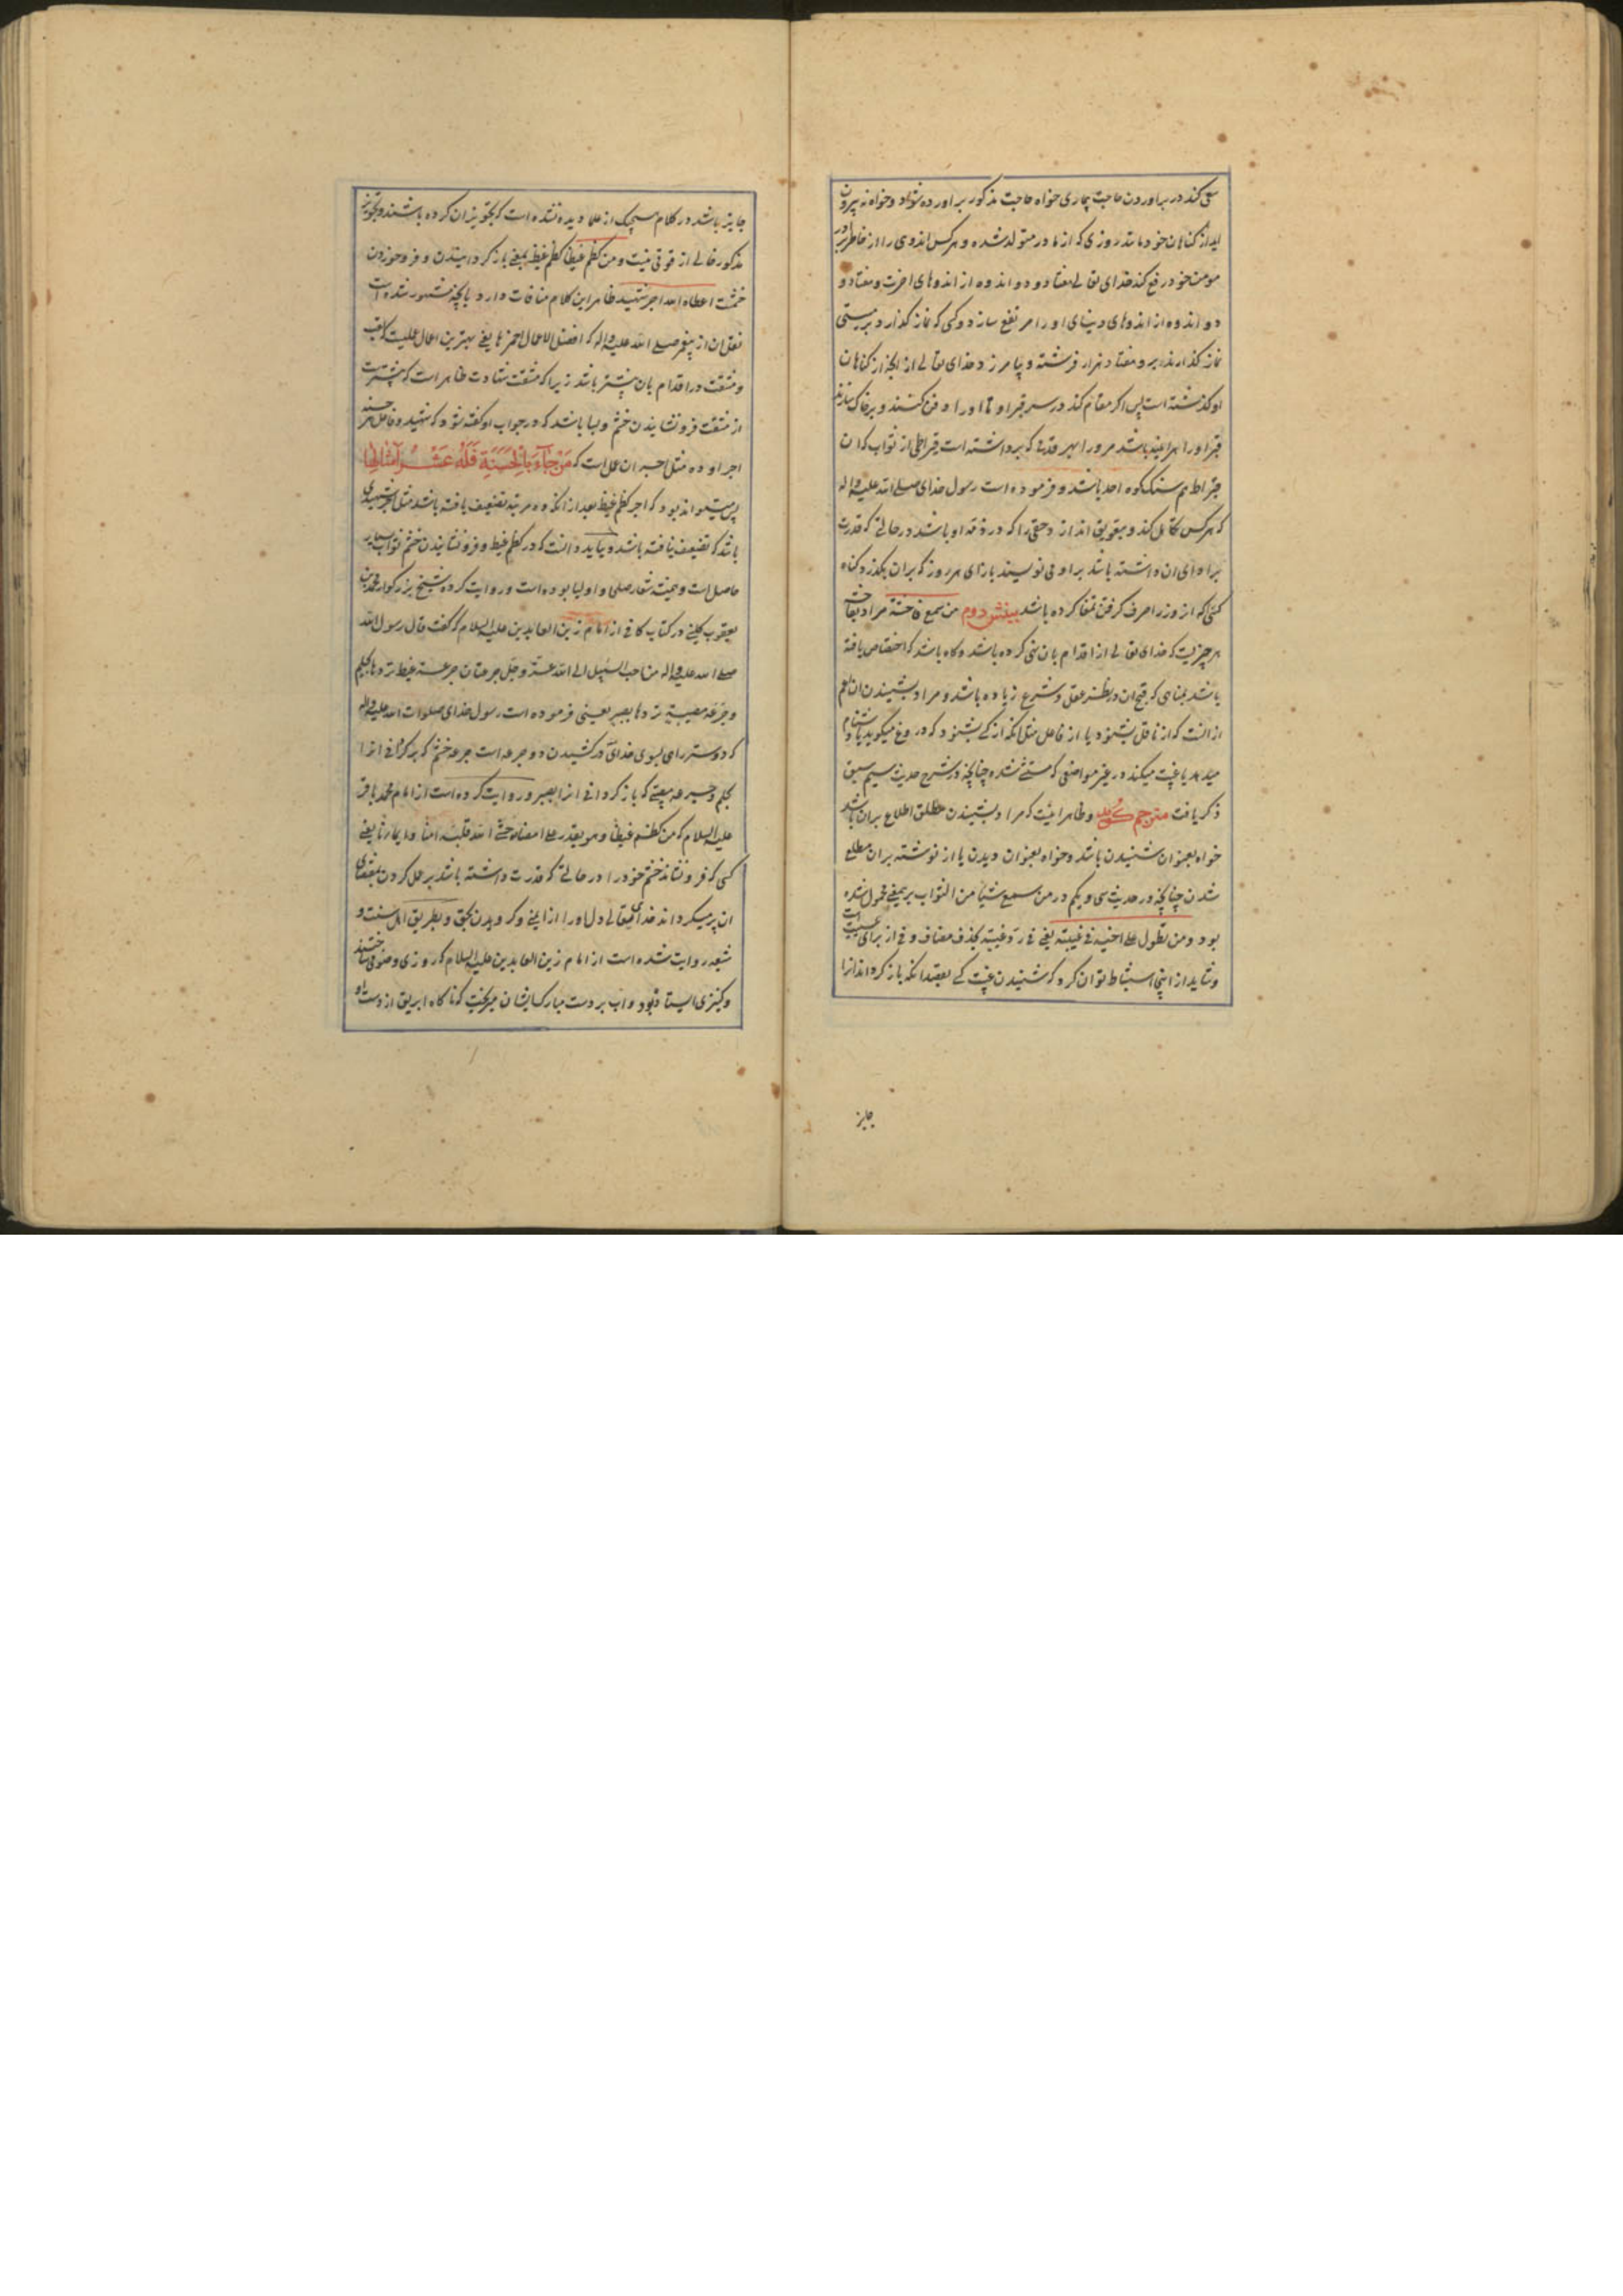 سعی کند در براوردن حاجت بیماری خواه حاجت مذکور براورده شود و خواه نه بیرون
اید از کناهان خود مانند روزی که از مادر متولد شده و هر کس اندوهی را از خاطر برادر
مومن خود رفع کند خدای تعالی هفتاد و دو اندوه از اندوههای اخرت و هفتاد و
دو اندوه از اندوههای دنیای او را مرتفع سازد و کسی که نماز کذارد بر میتی
نماز کذارند بر او هفتاد هزار فرشته و بیامرزد خدای تعالی از انچه از کناهان
او کذشته است پس اکر مقام کند در سر قبر او تا او را دفن کنند و بر خاک سازند
قبر او را هر اینه باشد مر او را بهر قدمی که برداشته است قیراطی از ثواب که ان
قیراط هم سنک کوه احد باشد و فرموده است رسول خدای صلی الله علیه و اله
که هر کس تکاهل کند و بتعویق اندازد حقی را که در ذمه او باشد در حالتی که قدرت
بر ادای ان داشته باشد بر او می نویسند بازای هر روز که بران بکذرد کناه
کسی که از وزر اصرف کرفتن تمغا کرده باشد بینش دوم من سمع فاحشة مراد بفاحشه
هر چیزیست که خدای تعالی از اقدام بان نهی کرده باشد و کاه باشد که اختصاص یافته
باشد بمناهی که قبح ان در نظر عقل و شرع زیاده باشد و مراد بشنیدن ان اعم
از انست که از ناقل بشنود یا از فاعل مثل انکه از کسی بشنود که دروغ میکوید یا دشنام
میدهد یا غیبت میکند در غیر مواضعی که مستثنی شده چنانچه در شرح حدیث سیم سبق
ذکر یافت مترجم کوید و ظاهر اینست که مراد بشنیدن مطلق اطلاع بران باشد
خواه بعنوان شنیدن باشد و خواه بعنوان دیدن یا از نوشته بران مطلع
شدن چنانچه در حدیث سی و یکم در من سمع شیئا من الثواب بر یمعنی محمول شده
بود و من تطول علی اخیه فی غیبته یعنی فی رد غیبته بحذف مضاف و فی از برای سببیت است
و شاید از اینجا استنباط توان کرد که شنیدن غیبت کسی بقصد انکه باز کرداند انرا
جایز
جایز باشد در کلام هیچیک از علما دیده نشده است که تجویز ان کرده باشند و تجویز
مذکور خالی از قوتی نیست و من کظم غیظا کظم غیظ بمعنی باز کردانیدن و فرو خوردن
خشمست اعطاه الله اجر شهید ظاهر این کلام منافات دارد با انچه مشهور شده است
نقل ان از پیغمبر صلی الله علیه و اله که افضل الاعمال احمزها یعنی بهترین اعمال عملیست که تعب
و مشقت در اقدام بان بیشتر باشد زیرا که مشقت شهادت ظاهر است که بیشتر است
از مشقت فرو نشانیدن خشم و بسا باشد که در جواب او کفته شود که شهید و فاعل هر حسنه
اجر او ده مثل اجر ان عمل است که مَنْ جآءَ بِالْحَسَنَةِ فَلَهُ عَشْرُ اَمْثالِها
پس میتواند بود که اجر کظم غیظ بعد از انکه ده مرتبه تضعیف یافته باشد مثل اجر شهیدی
باشد که تضعیف نیافته باشد و بباید دانست که در کظم غیظ و فرو نشانیدن خشم ثواب بسیار
حاصل است و همیشه شعار صلحا و اولیا بوده است و روایت کرده شیخ بزرکوار محمد بن
یعقوب کلینی در کتاب کافی از امام زین العابدین علیه السلام که کفت قال رسول الله
صلی الله علیه و اله من احب السبیل الی الله عز و جل جرعتان جرعة غیظ تردها بحلم
و جرعة مصیبة تردها بصبر یعنی فرموده است رسول خدای صلوات الله علیه و اله
که دوستر راهی بسوی خدای در کشیدن دو جرعه است جرعه خشم که بر کردانی انرا
بحلم و جرعه مصیبتی که باز کردانی انرا بصبر و روایت کرده است از امام محمد باقر
علیه السلام که من کظم غیظا و هو یقدر علی امضائه حشی الله قلبه امنا و ایمانا یعنی
کسی که فرو نشاند خشم خود را در حالتی که قدرت داشته باشد بر عمل کردن بمقتضای
ان پر میکرداند خدای تعالی دل او را از ایمنی و کرویدن بحق و بطریق اهل سنت و
شیعه روایت شده است از امام زین العابدین علیه السلام که روزی وضو میساختند
و کنیزی ایستاده بود و اب بر دست مبارک ایشان میریخت که ناکاه ابریق از دست او